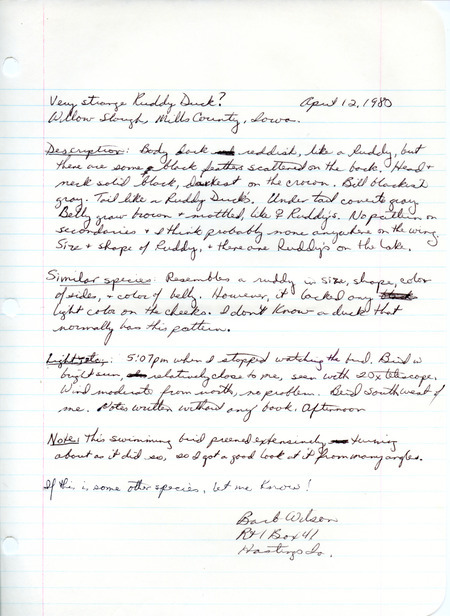 Very strange Ruddy Duck? April 12, 1980
Willow Slough, Mills County, Iowa.
Description: Body dark reddish, like a Ruddy, but
there are some black feathers scattered on the back. Head +
neck solid black, darkest on the crown. Bill blackish
gray. Tail like a Ruddy Duck's. Under tail coverts gray
Belly gray brown + mottled, like ♀ Ruddy's. No pattern on
secondaries + I think probably none anywhere on the wing.
Size + shape of Ruddy, + there are Ruddy's on the lake.
Similar species: Resembles a ruddy in size, shape, color
of sides, + color of belly. However, it lacked any
light color on the cheeks. I don't know a duck that
normally has this pattern.
Light, etc.: 5:07pm when I stopped watching the bird. Bird in
bright sun, relatively close to me, seen with 20x telescope.
Wind moderate from north, no problem. Bird southwest of
me. Notes written without any book. Afternoon
Note: This swimming bird preened extensively, turning
about as it did so, so I got a good look at it from many angles.
If this is some other species, let me know!
Barb Wilson
Rt 1 Box 41
Hastings Ia.